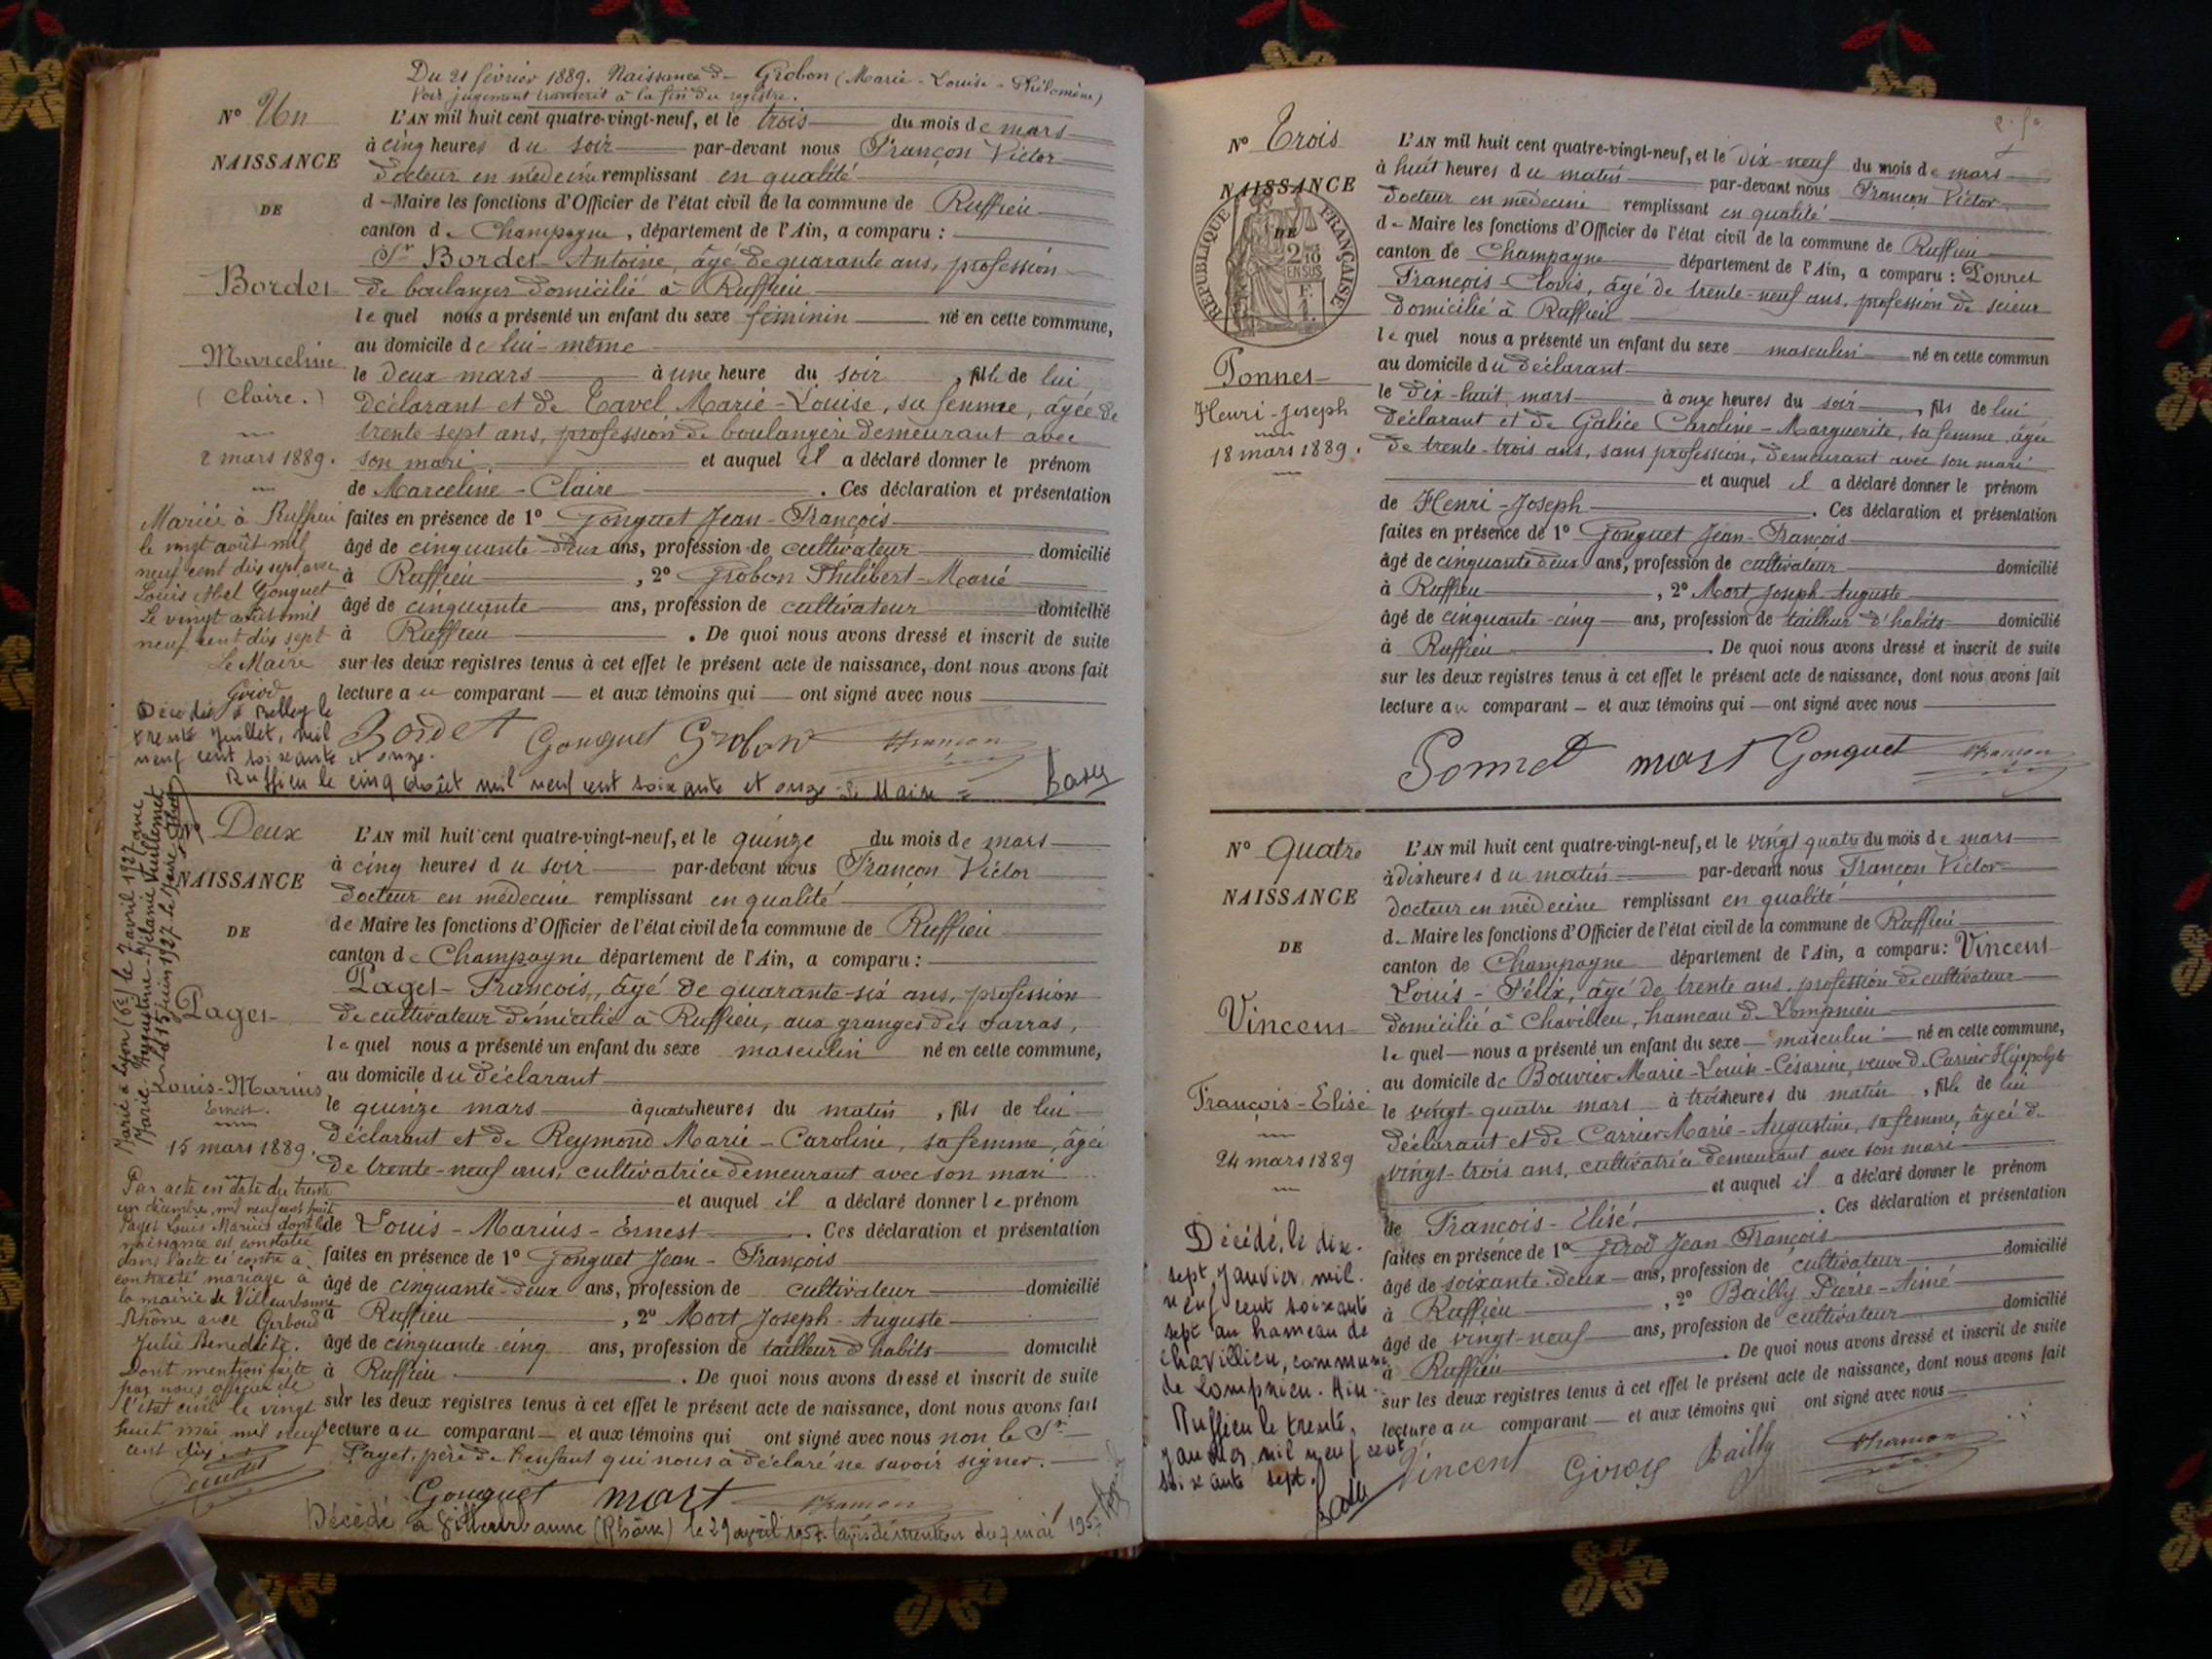 Du 21 février 1889. Naissance de Grobon (Marie-Louise-Philomène)
Voir jugement transcrit à la fin du registre.
N° Un
NAISSANCE
DE
Bordet
Marceline
(Claire.)
2 mars 1889.
Mariée à Ruffieu
le vingt août mil
neuf cent dix sept avec
Louis Abel Gonguet
Le vingt août mil
neuf cent dix sept
Le Maire
Girod
Décédée à Belley le
trente Juillet, mil
neuf cent soixante et onze.
Ruffieu le cinq Août mil neuf cent soixante et onze - Le Maire =
L'AN mil huit cent quatre-vingt-neuf, et le trois du mois de mars
à cinq heures du soir par-devant nous Françon Victor
docteur en médecine remplissant en qualité
de Maire les fonctions d'Officier de l'état civil de la commune de Ruffieu
canton de Champagne, département de l'Ain, a comparu :
Sr Bordet Antoine, âgé de quarante ans, profession
de boulanger domicilié à Ruffieu
lequel nous a présenté un enfant du sexe féminin né en cette commune,
au domicile de lui-même
le deux mars à une heure du soir, fille de lui
déclarant et de Tavel Marie-Louise, sa femme, âgée de
trente-sept ans, profession de boulangère demeurant avec
son mari et auquel il a déclaré donner le prénom
de Marceline-Claire. Ces déclaration et présentation
faites en présence de 1° Gonguet Jean-François
âgé de cinquante-deux ans, profession de cultivateur domicilié
à Ruffieu, 2° Grobon Philibert-Marie
âgé de cinquante ans, profession de cultivateur domicilié
à Ruffieu. De quoi nous avons dressé et inscrit de suite
sur les deux registres tenus à cet effet le présent acte de naissance, dont nous avons fait
lecture au comparant et aux témoins qui ont signé avec nous
Bordet Gonguet Grobon Françon
N° Deux
NAISSANCE
DE
Paget
Louis-Marius
Ernest.
15 mars 1889.
Marié à Lyon (6e) le 7 avril 1927 avec
Par acte en date du trente
un décembre mil neuf cent huit
Paget Louis Marius dont la
naissance est constatée
dans l'acte ci contre a
contracté mariage à
la mairie de Villeurbanne
Rhône avec Gerboud
Julie Benedicte.
Dont mention faite
par nous officier de
l'état civil le vingt
huit mai mil neuf
cent dix
L'AN mil huit cent quatre-vingt-neuf, et le quinze du mois de mars
à cinq heures du soir par-devant nous Françon Victor
docteur en médecine remplissant en qualité
de Maire les fonctions d'Officier de l'état civil de la commune de Ruffieu
canton de Champagne département de l'Ain, a comparu :
Paget François, âgé de quarante-six ans, profession
de cultivateur domicilié à Ruffieu, aux granges des Sarras,
lequel nous a présenté un enfant du sexe masculin né en cette commune,
au domicile du déclarant
le quinze mars à quatre heures du matin, fils de lui
déclarant et de Reymond Marie-Caroline, sa femme, âgée
de trente-neuf ans, cultivatrice demeurant avec son mari
et auquel il a déclaré donner le prénom
de Louis-Marius-Ernest. Ces déclaration et présentation
faites en présence de 1° Gonguet Jean-François
âgé de cinquante-deux ans, profession de cultivateur domicilié
à Ruffieu, 2° Mort Joseph-Auguste
âgé de cinquante-cinq ans, profession de tailleur d'habits domicilié
à Ruffieu. De quoi nous avons dressé et inscrit de suite
sur les deux registres tenus à cet effet le présent acte de naissance, dont nous avons fait
lecture au comparant et aux témoins qui ont signé avec nous non le Sr
Paget, père de l'enfant qui nous a déclaré ne savoir signer.
Gonguet mort Françon
Décédé à Villeurbanne (Rhône) le 29 avril 1957. (avis de mention du 7 mai 1957
N° Trois
NAISSANCE
DE
RÉPUBLIQUE FRANÇAISE
2/10
EN SUS
Ponnet
Henri-Joseph
18 mars 1889.
L'AN mil huit cent quatre-vingt-neuf, et le dix-neuf du mois de mars
à huit heures du matin par-devant nous Françon Victor
docteur en médecine remplissant en qualité
de Maire les fonctions d'Officier de l'état civil de la commune de Ruffieu
canton de Champagne département de l'Ain, a comparu : Ponnet
François-Clovis, âgé de trente-neuf ans, profession de scieur
domicilié à Ruffieu
lequel nous a présenté un enfant du sexe masculin né en cette commun
au domicile du déclarant
le dix-huit mars à onze heures du soir, fils de lui
déclarant et de Galice Caroline-Marguerite, sa femme, âgée
de trente-trois ans, sans profession, demeurant avec son mari
et auquel il a déclaré donner le prénom
de Henri-Joseph. Ces déclaration et présentation
faites en présence de 1° Gonguet Jean-François
âgé de cinquante deux ans, profession de cultivateur domicilié
à Ruffieu, 2° Mort Joseph-Auguste
âgé de cinquante-cinq ans, profession de tailleur d'habits domicilié
à Ruffieu. De quoi nous avons dressé et inscrit de suite
sur les deux registres tenus à cet effet le présent acte de naissance, dont nous avons fait
lecture au comparant et aux témoins qui ont signé avec nous
Ponnet mort Gonguet Françon
N° Quatre
NAISSANCE
DE
Vincent
François-Elisé
24 mars 1889
Décédé, le dix-
sept Janvier, mil.
neuf cent soixante
sept au hameau de
Chavillieu, commune
de Lompnieu. Ain.
Ruffieu le trente,
Janvier, mil neuf cent
soixante sept.
L'AN mil huit cent quatre-vingt-neuf, et le vingt quatre du mois de mars
à dix heures du matin par-devant nous Françon Victor
docteur en médecine remplissant en qualité
de Maire les fonctions d'Officier de l'état civil de la commune de Ruffieu
canton de Champagne département de l'Ain, a comparu : Vincent
Louis-Félix, âgé de trente ans, profession de cultivateur
domicilié à Chavillieu, hameau de Lompnieu
lequel nous a présenté un enfant du sexe masculin né en cette commune,
au domicile de Bouvier Marie-Louise-Césarine, veuve de Carrier Hippolyte
le vingt-quatre mars à trois heures du matin, fils de lui
déclarant et de Carrier Marie-Augustine, sa femme, âgée de
vingt-trois ans, cultivatrice demeurant avec son mari
et auquel il a déclaré donner le prénom
de François-Elisé. Ces déclaration et présentation
faites en présence de 1° Girod Jean-François
âgé de soixante-deux ans, profession de cultivateur domicilié
à Ruffieu, 2° Bailly Pierre-Aimé
âgé de vingt-neuf ans, profession de cultivateur domicilié
à Ruffieu. De quoi nous avons dressé et inscrit de suite
sur les deux registres tenus à cet effet le présent acte de naissance, dont nous avons fait
lecture au comparant et aux témoins qui ont signé avec nous
Vincent Girod Bailly Françon